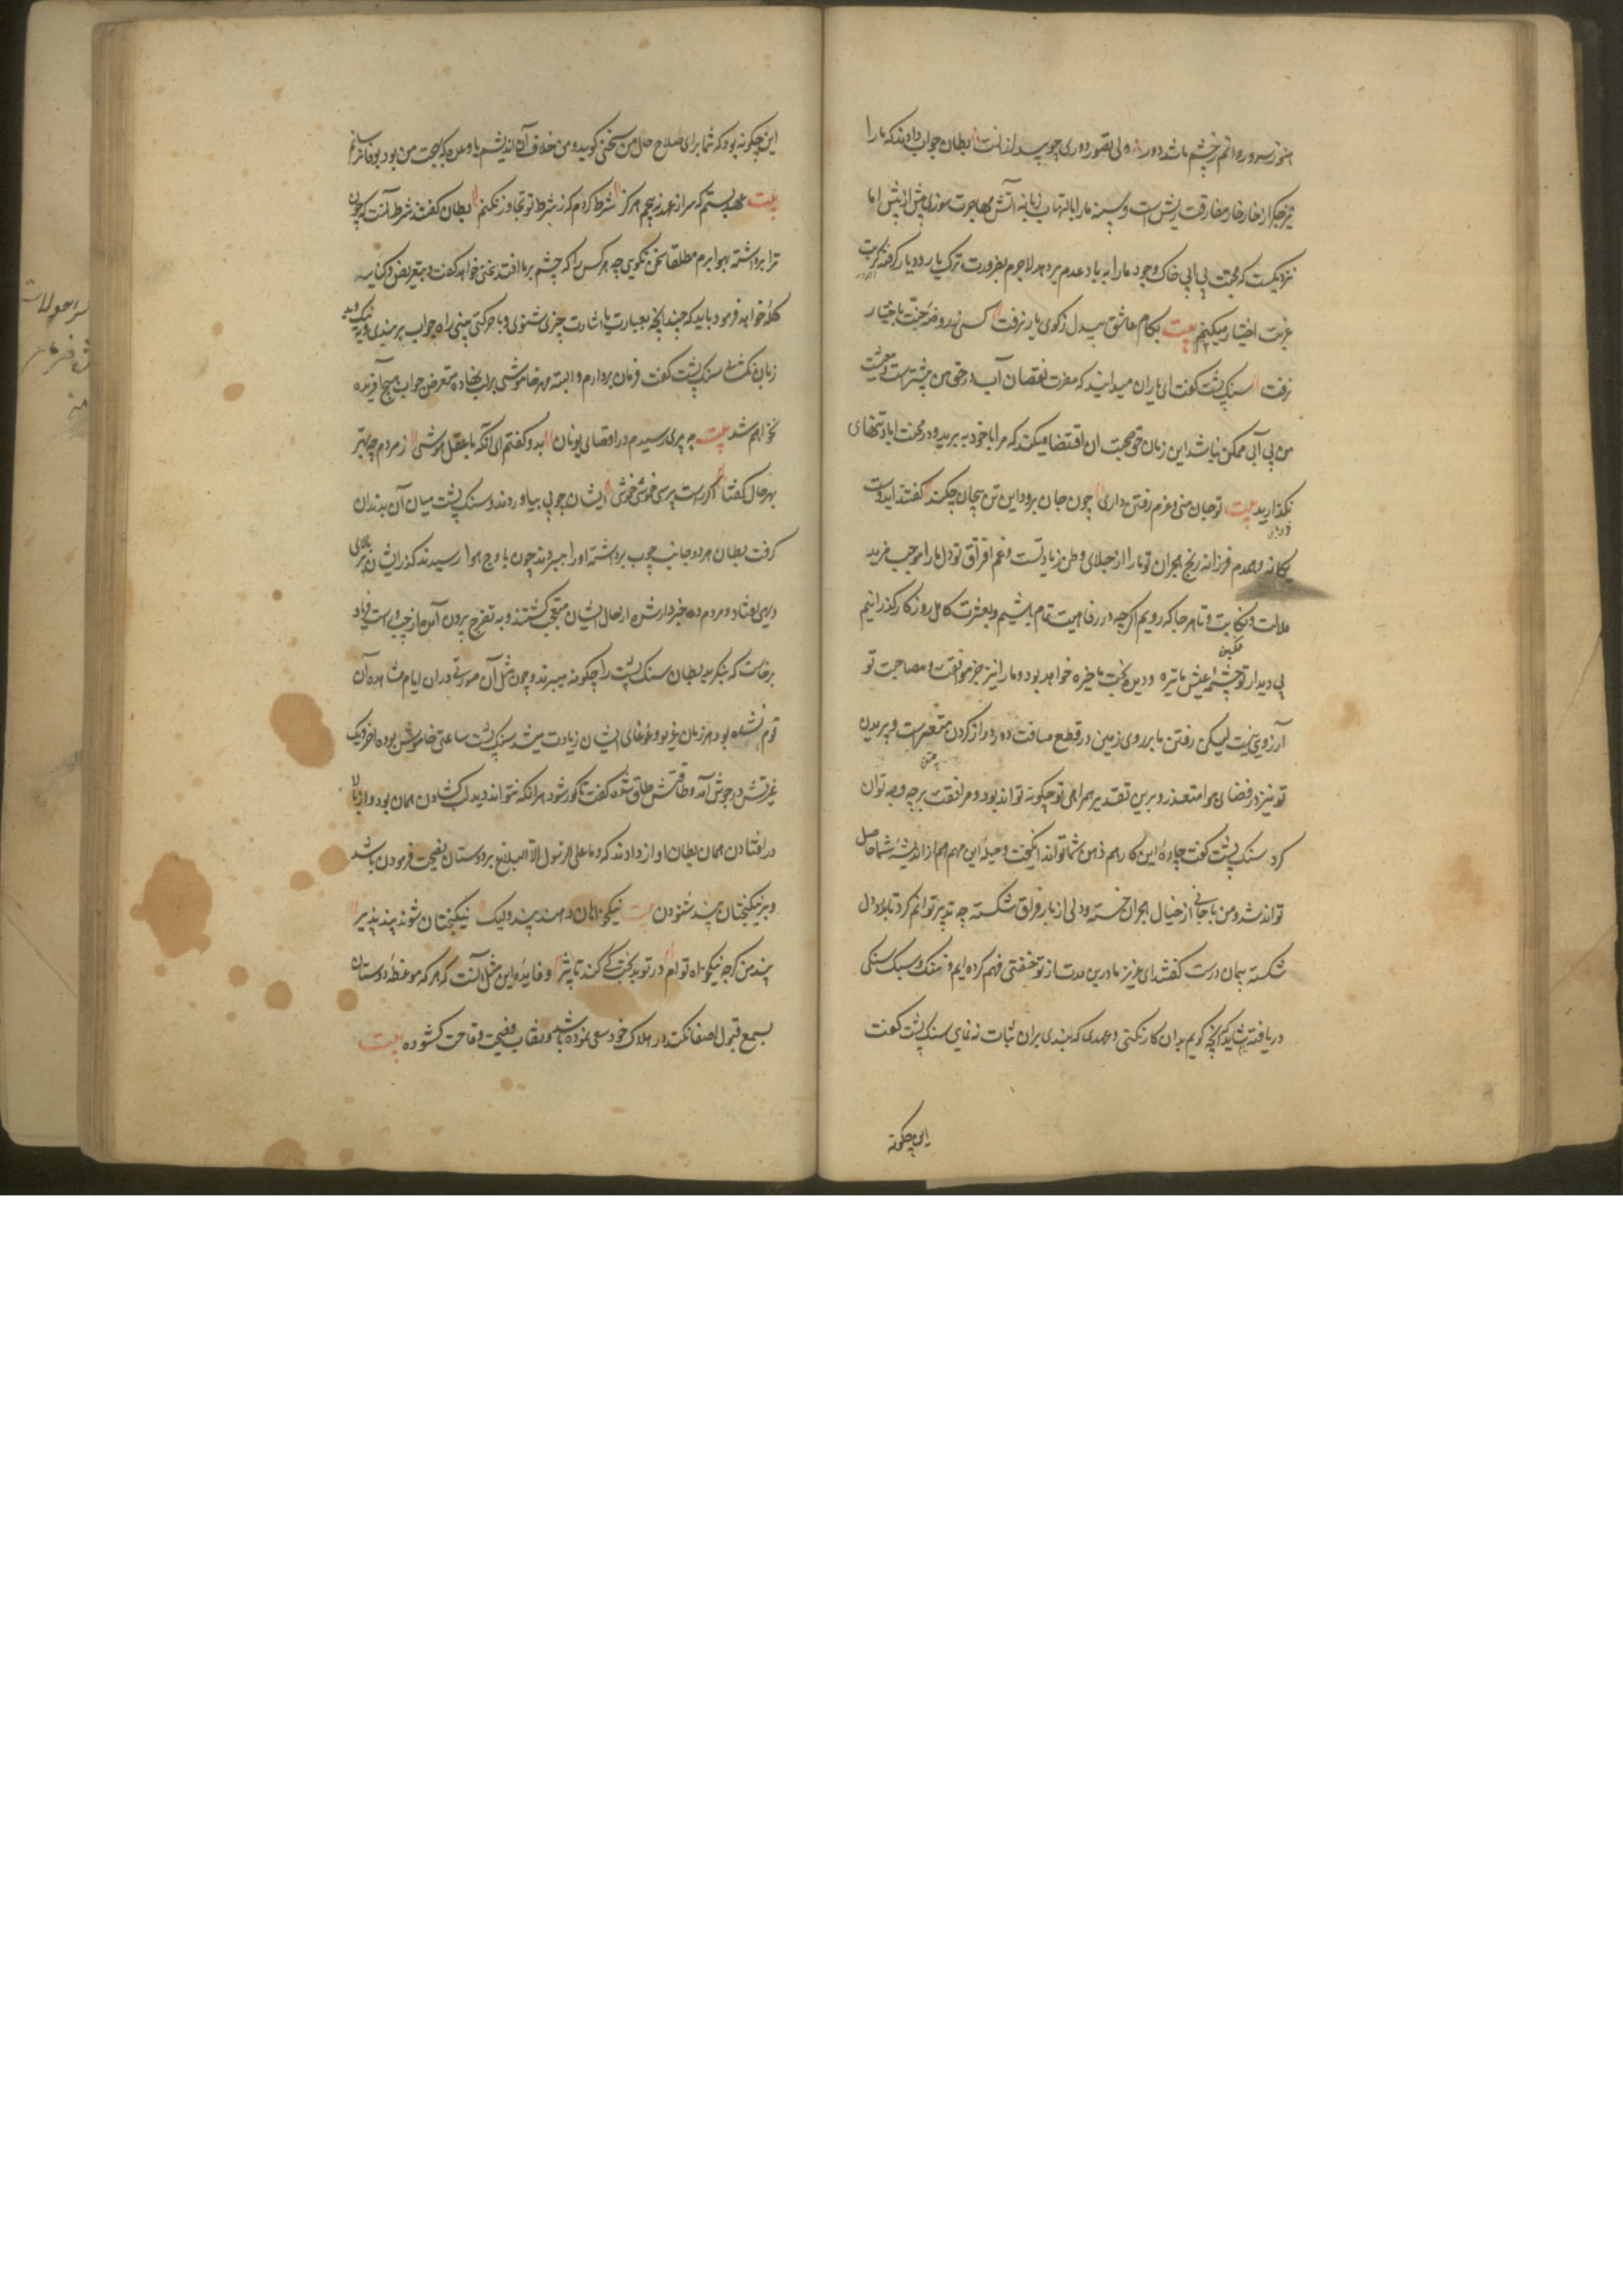 هنوز سرو روانم ز چشم ناشده دور دلی تصور دوری چو بید لرزانست بطان جواب دادند که ما را
نیز جگر از خار خار مفارقت ریش است و سینه ما را با التهاب زبانه آتش مهاجرت سوزی بیش از بیش اما
نزدیکست که محنت بی آبی خاک وجود ما را به باد عدم بردهد لاجرم بضرورت ترک یار و دیار گرفته کربت
غربت اختیار میکنیم بیت بکام عاشق بیدل ز کوی یار نرفت کسی ز روضه جنت باختیار
نرفت سنک پشت کفت ای یاران میدانید که مضرت نقصان آب در حق من بیشترست و معیشت
من بی آبی ممکن نباشد این زمان حق صحبت ان اقتضا میکند که مرا با خود به برید و در محنت اباد تنهای
نکذارید بیت تو جان منی و عزم رفتن داری چون جان برود این تن بیجان چکند کفتند ای دوست
یکانه و همدم فرزانه رنج هجران تو ما را از جلای وطن زیادتست و غم افتراق تو دل ما را موجب مزید
ملالت و نکایت و تا هر جا که رویم اکر چه در رفاهیت تمام باشیم و بعشرت کامل روزکار کذرانیم
بی دیدار تو چشمه عیش ما تیره و دیده بخت ما خیره خواهد بود و ما را نیز جز موافقت و مصاحبت تو
آرزویی نیست لیکن رفتن ما بر روی زمین در قطع مسافت دور دراز کردن متعسرست و پریدن
تو نیز در فضای هوا متعذر و برین تقدیر همراهی تو چکونه تواند بود و مرافقت بر چه وجه توان
کرد سنک پشت کفت چاره این کار هم ذهن شما تواند انکیخت و حیله این مهم هم از اندیشه شما حاصل
تواند شد و من با جانی از خیال هجران خسته و دلی از بار فراق شکسته چه تدبیر توانم کرد
شکسته پیمان درست کفتند ای عزیز ما درین مدت از تو خفتی فهم کرده ایم و سبک سنکی
دریافته شاید که آنچه کویم بدان کار نکنی و عهدی که بندی بران ثبات نه نمای سنک پشت کفت
این چکونه
این چکونه بود که شما برای صلاح حال من سخن کویید و من خلاف آن اندیشم یا وعده که بجهت من بود بوفا نرسانم
بیت عهد بستم که سر از عهد نه پیچم هرکز شرط کردم که ز شرط تو تجاوز نکنم بطان کفتند شرط آنست که چون
ترا برداشته بهوا برم مطلقا سخن نکویی چه هر کس را که چشم بر ما افتد سخنی خواهد کفت و بتعریض و کنایه
کله خواهد فرمود باید که چندانچه بعبارت یا اشارت چیزی شنوی و یا حرکتی بینی راه جواب بربندی و به نیک و بد
زبان نکشای سنک پشت کفت فرمان بردارم و البته مهر خاموشی بر لب نهاده متعرض جواب هیچ آفریده
نخواهم شد بیت به پیری رسیدم در اقصای یونان بدو کفتم ای آنکه با عقل و هوشی ز مردم چه بهتر
بهر حال کفتا اکر راست پرسی خموشی خموشی ایشان چوبی بیاوردند و سنک پشت میان آن بدندان
کرفت بطان هر دو جانب چوب برداشته او را میبردند چون باوج هوا رسیدند کذر ایشان بر بالای
دیهی افتاد و مردم ده خبردار شده از حال ایشان متعجب کشتند و به تفرج بیرون آمده از چپ و راست فریاد
برخاست که بنکرید بطان سنک پشت را چکونه میبرند و چون مثل آن صورتی در ان ایام مشاهده آن
قوم نشده بود هر زمان غریو و غوغای ایشان زیادت میشد سنک پشت ساعتی خاموش بوده اخر دیک
غیرتش در جوش آمد و طاقتش طاق شده کفت تا کور شود هر انکه نتواند دید لب کشادن همان بود و از بالا
در افتادن همان بطان اواز دادند که و ما علی الرسول الا البلاغ بر دوستان نصیحت فرمودن باشد
و بر نیکبختان پند شنودن بیت نیکخواهان دهند پند ولیک نیکبختان شوند پند پذیر
پند من کرچه نیکخواه توام در تو بدبخت کی کند تاثیر و فایده این مثل آنست که هر که موعظه دوستان
بسمع قبول اصغا نکند در هلاک خود سعی نموده باشد و نقاب فضیحت و قاحت کشوده بیت